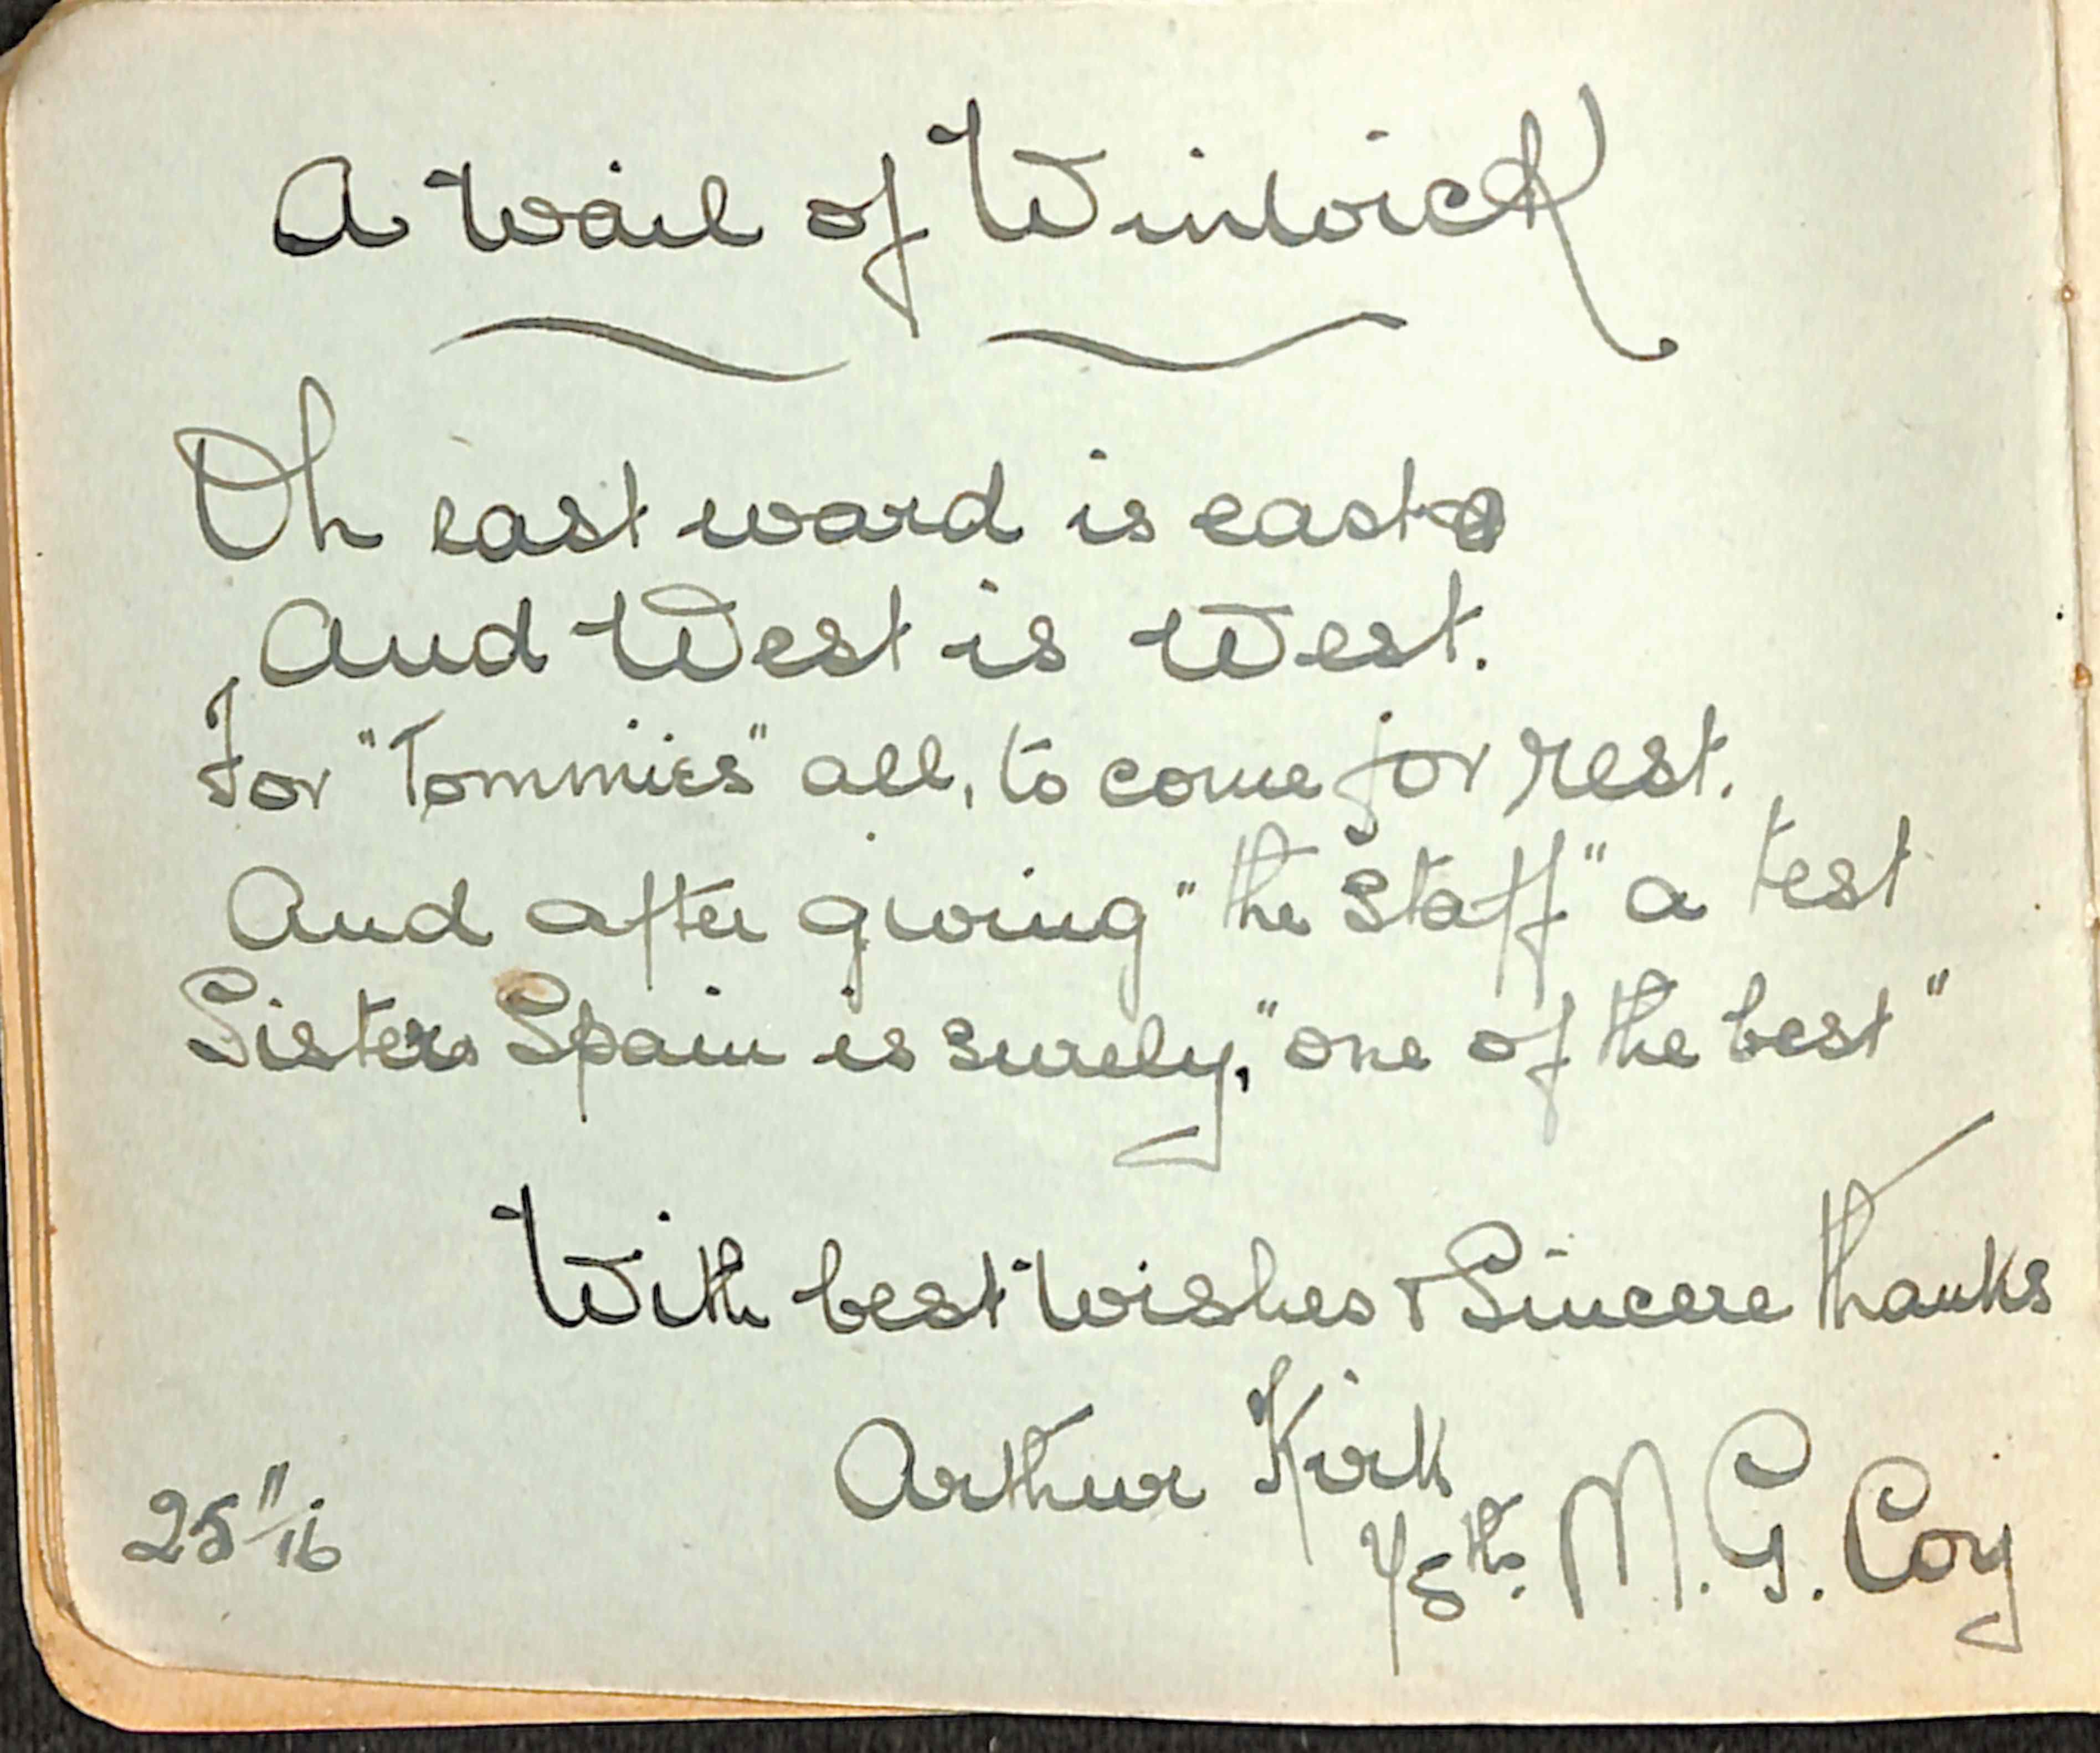 A Wail of Winwick
Oh east ward is east
And West is West.
For "Tommies" all, to come for rest.
And after giving "the Staff" a test
Sister Spain is surely, "one of the best"
With best wishes & Sincere thanks
Arthur Kirk
M. G. Coy
25 11/16